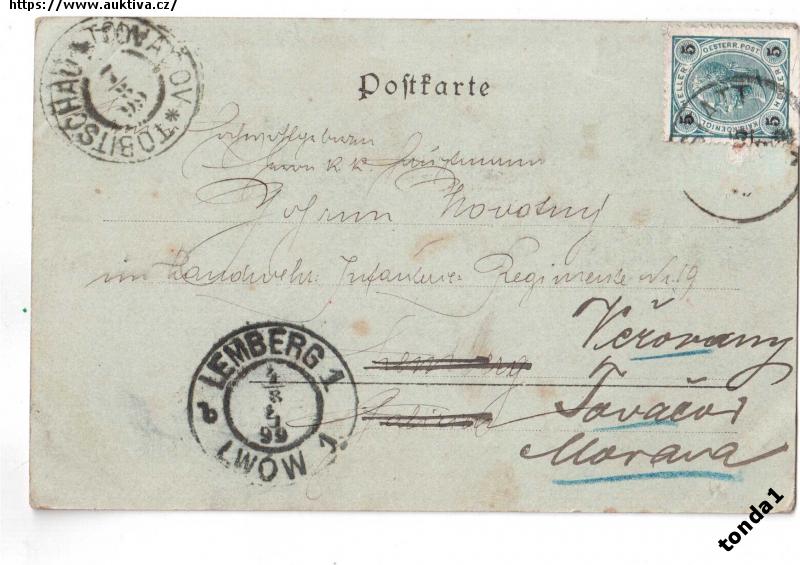 https://www.auktiva.cz/
TOBITSCHAU * TOVAČOV *
99
Postkarte
5 5
OESTERR. POST.
HELLER HELLER
5 5
Hochwohlgeboren
Herrn k.k. Hauptmann
Johann Novotny
im Landwehr Infanterie Regimente Nr. 19
Lemberg
Galizien
Věrovany
Tovačov
Morava
LEMBERG 1
99
b
LWÓW 1.
tonda1